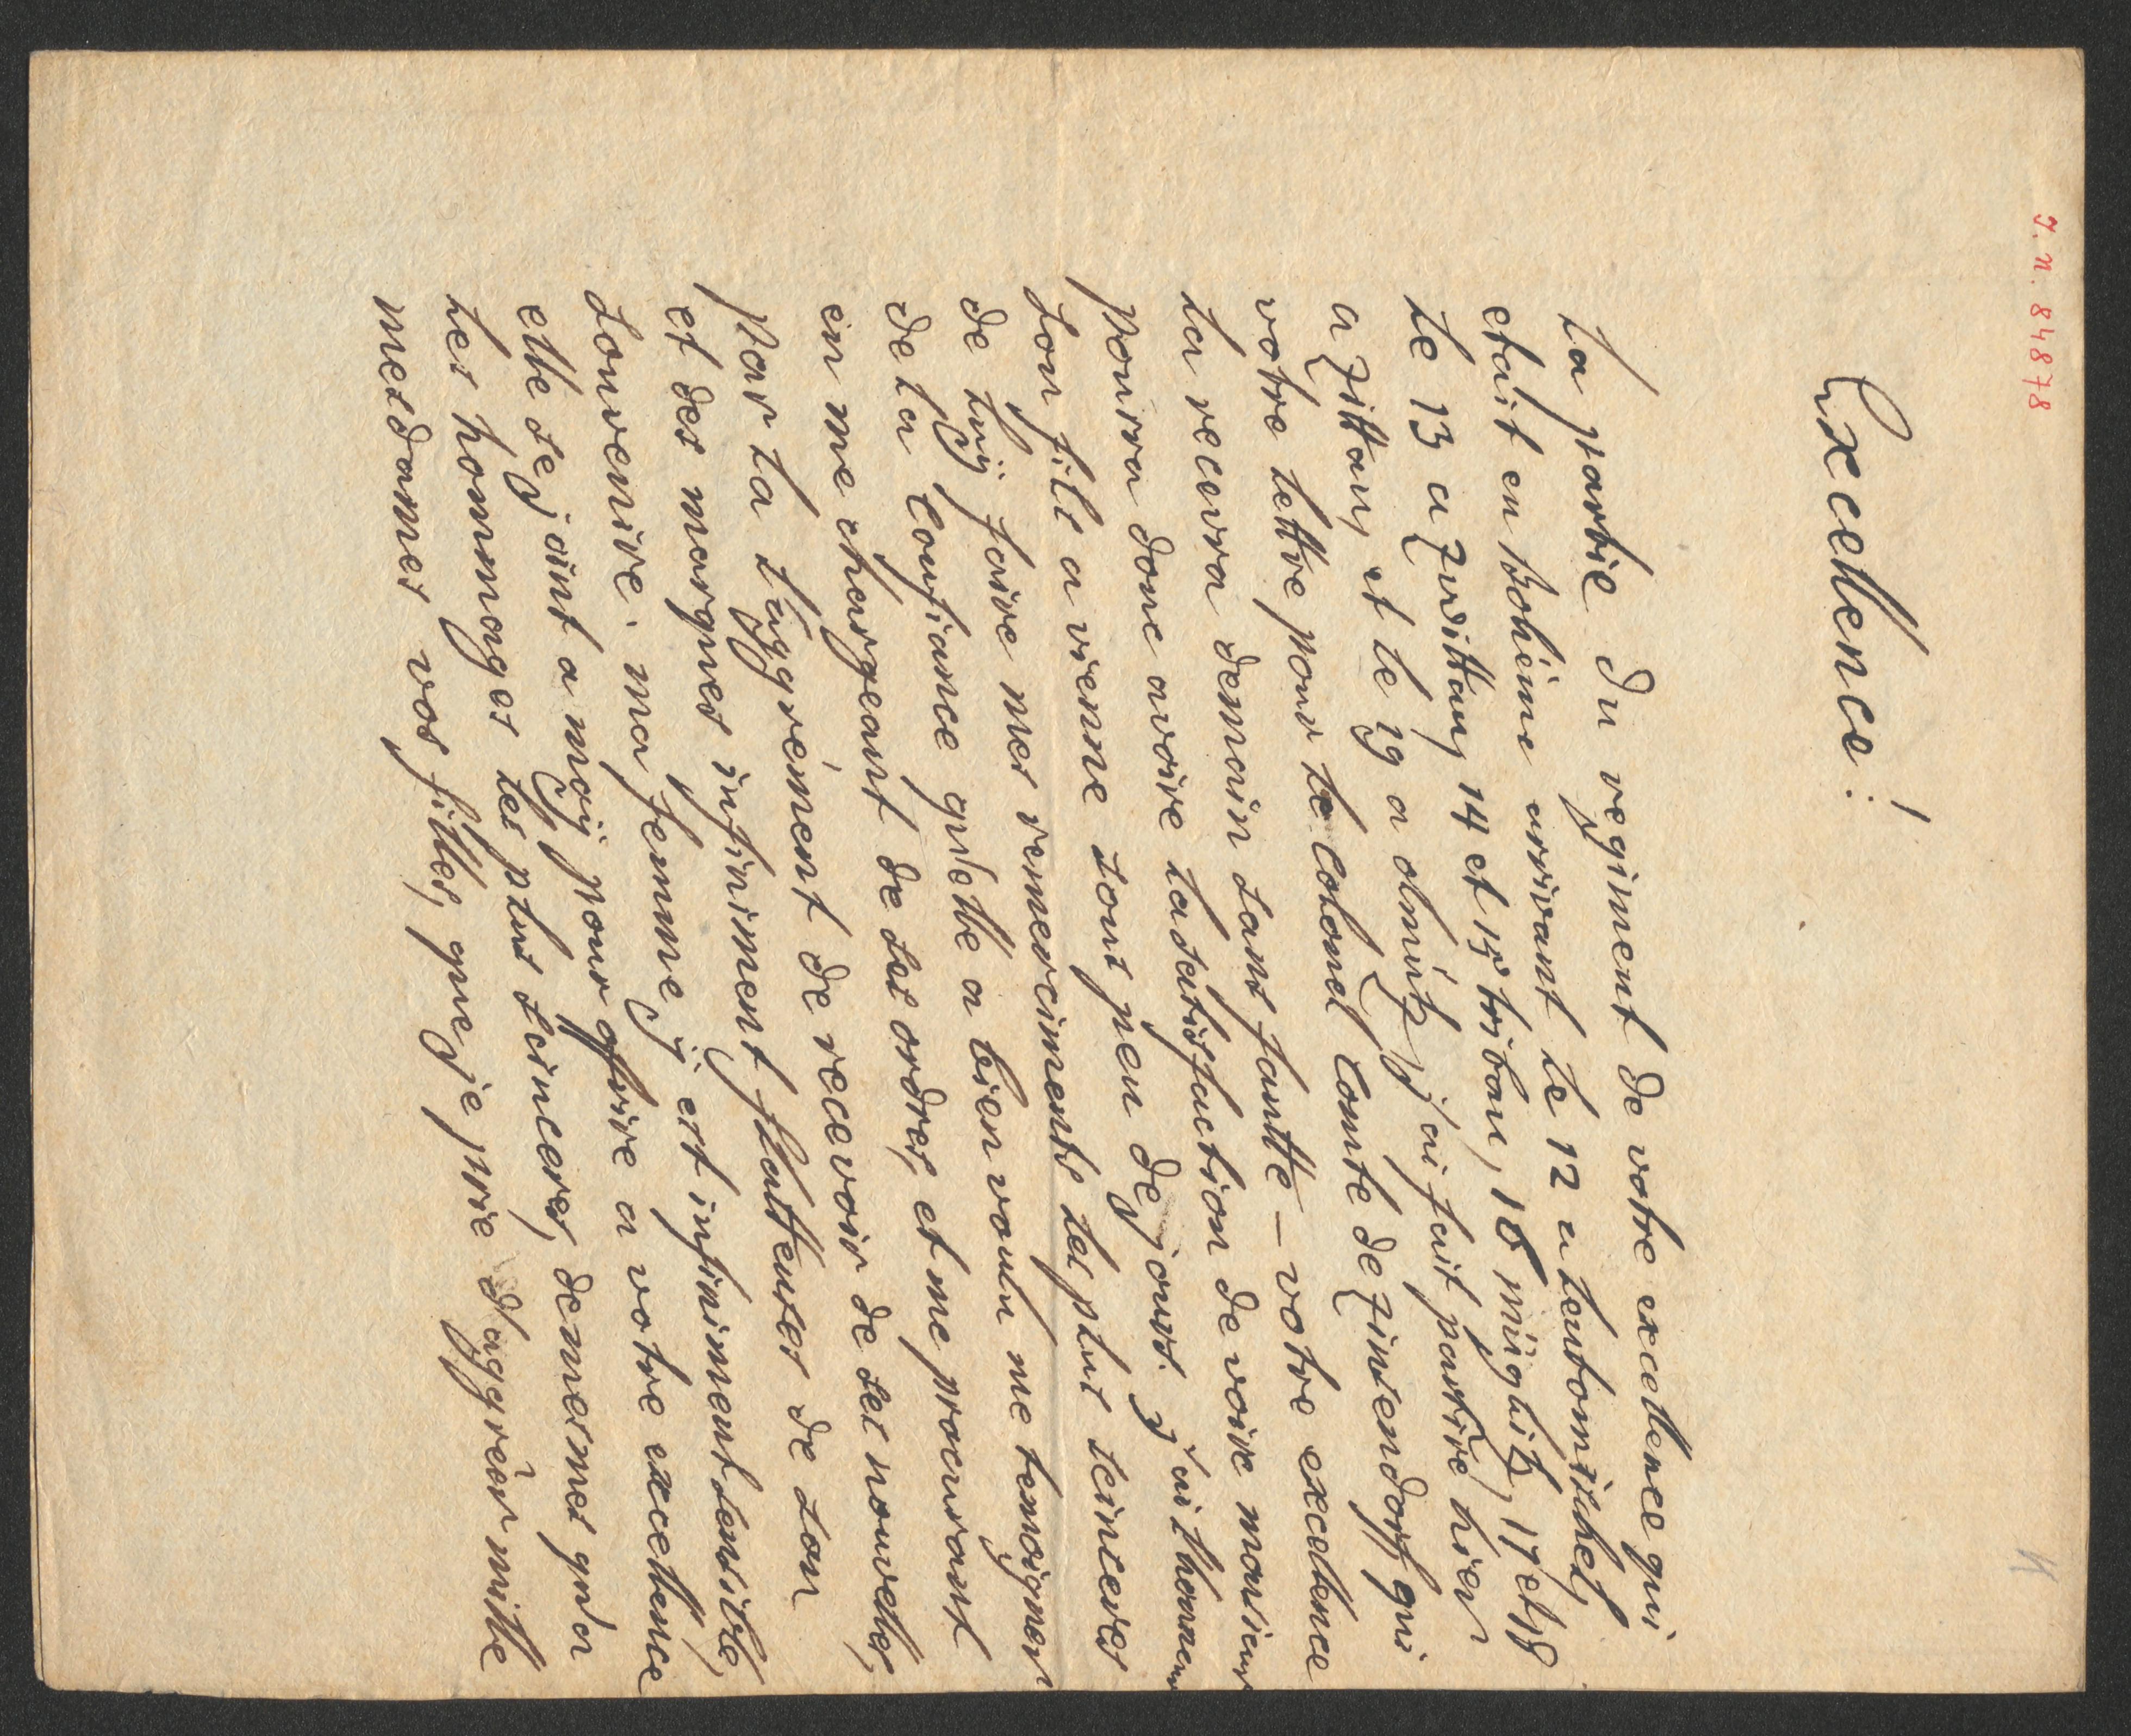 J. N. 84878
4
Excellence!
la partie du regiment de votre excellence qui
etait en bohême arrivant le 12 a leutomischel,
le 13 a zwittau, 14 et 15 tribau, 16 müglitz, 17 et 18
a zittau, et le 19 a olmütz, j'ai fait partire hier
votre lettre pour le colonel comte de zinsendorff qui
la recevra demain sans faulte – votre excellence
pourra donc avoire la satisfaction de voire monsieur
son fils a vienne sous peu de jours. j'ai l'honneur
de luij faire mes remerciments les plus sinceres
de la confiance qu'elle a bien voulu me temoigner
en me chargeant de ses ordres, et me procurant
par la l'aggrément de recevoir de ses nouvelles,
et des marques infiniment flatteuses de son
souvenire. ma femme ij est infiniment sensible,
elle se joint a moij pour offrire a votre excellence
les hommages les plus sinceres, de mesmes qu'a
mesdames vos filles, que je prie d'aggréer mille